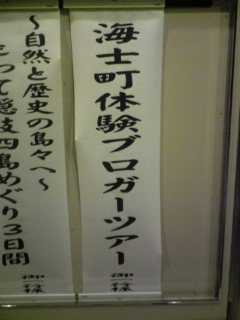 海士町体験ブロガーツアー
御一行様
～自然と歴史の島々へ～
って隠岐四島めぐり3日間
御一行様